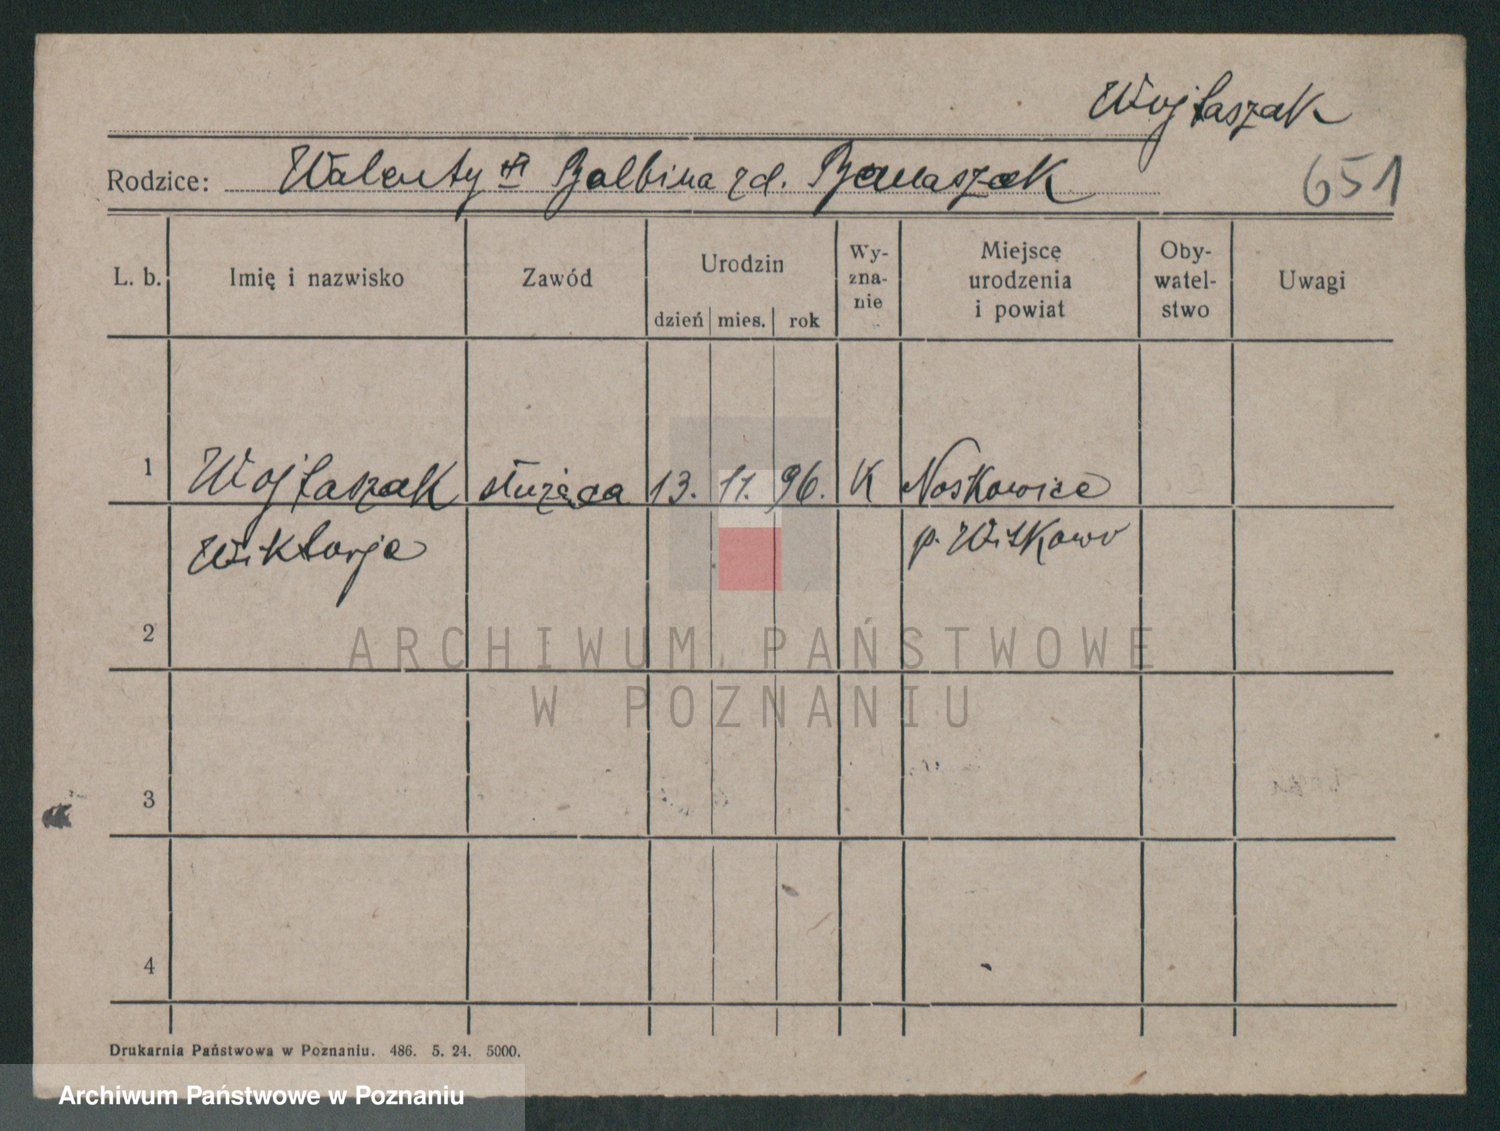 Wojtaszak
Rodzice: Walenty i Balbina zd. Banaszak
651
L. b. Imię i nazwisko Zawód Urodzin dzień mies. rok Wy-zna-nie Miejsce urodzenia i powiat Oby-watel-stwo Uwagi
1 Wojtaszak służąca 13. 11. 96. K Noskowice
Wiktorja p. Witkowo
2
ARCHIWUM PAŃSTWOWE
W POZNANIU
3
4
Drukarnia Państwowa w Poznaniu. 486. 5. 24. 5000.
Archiwum Państwowe w Poznaniu